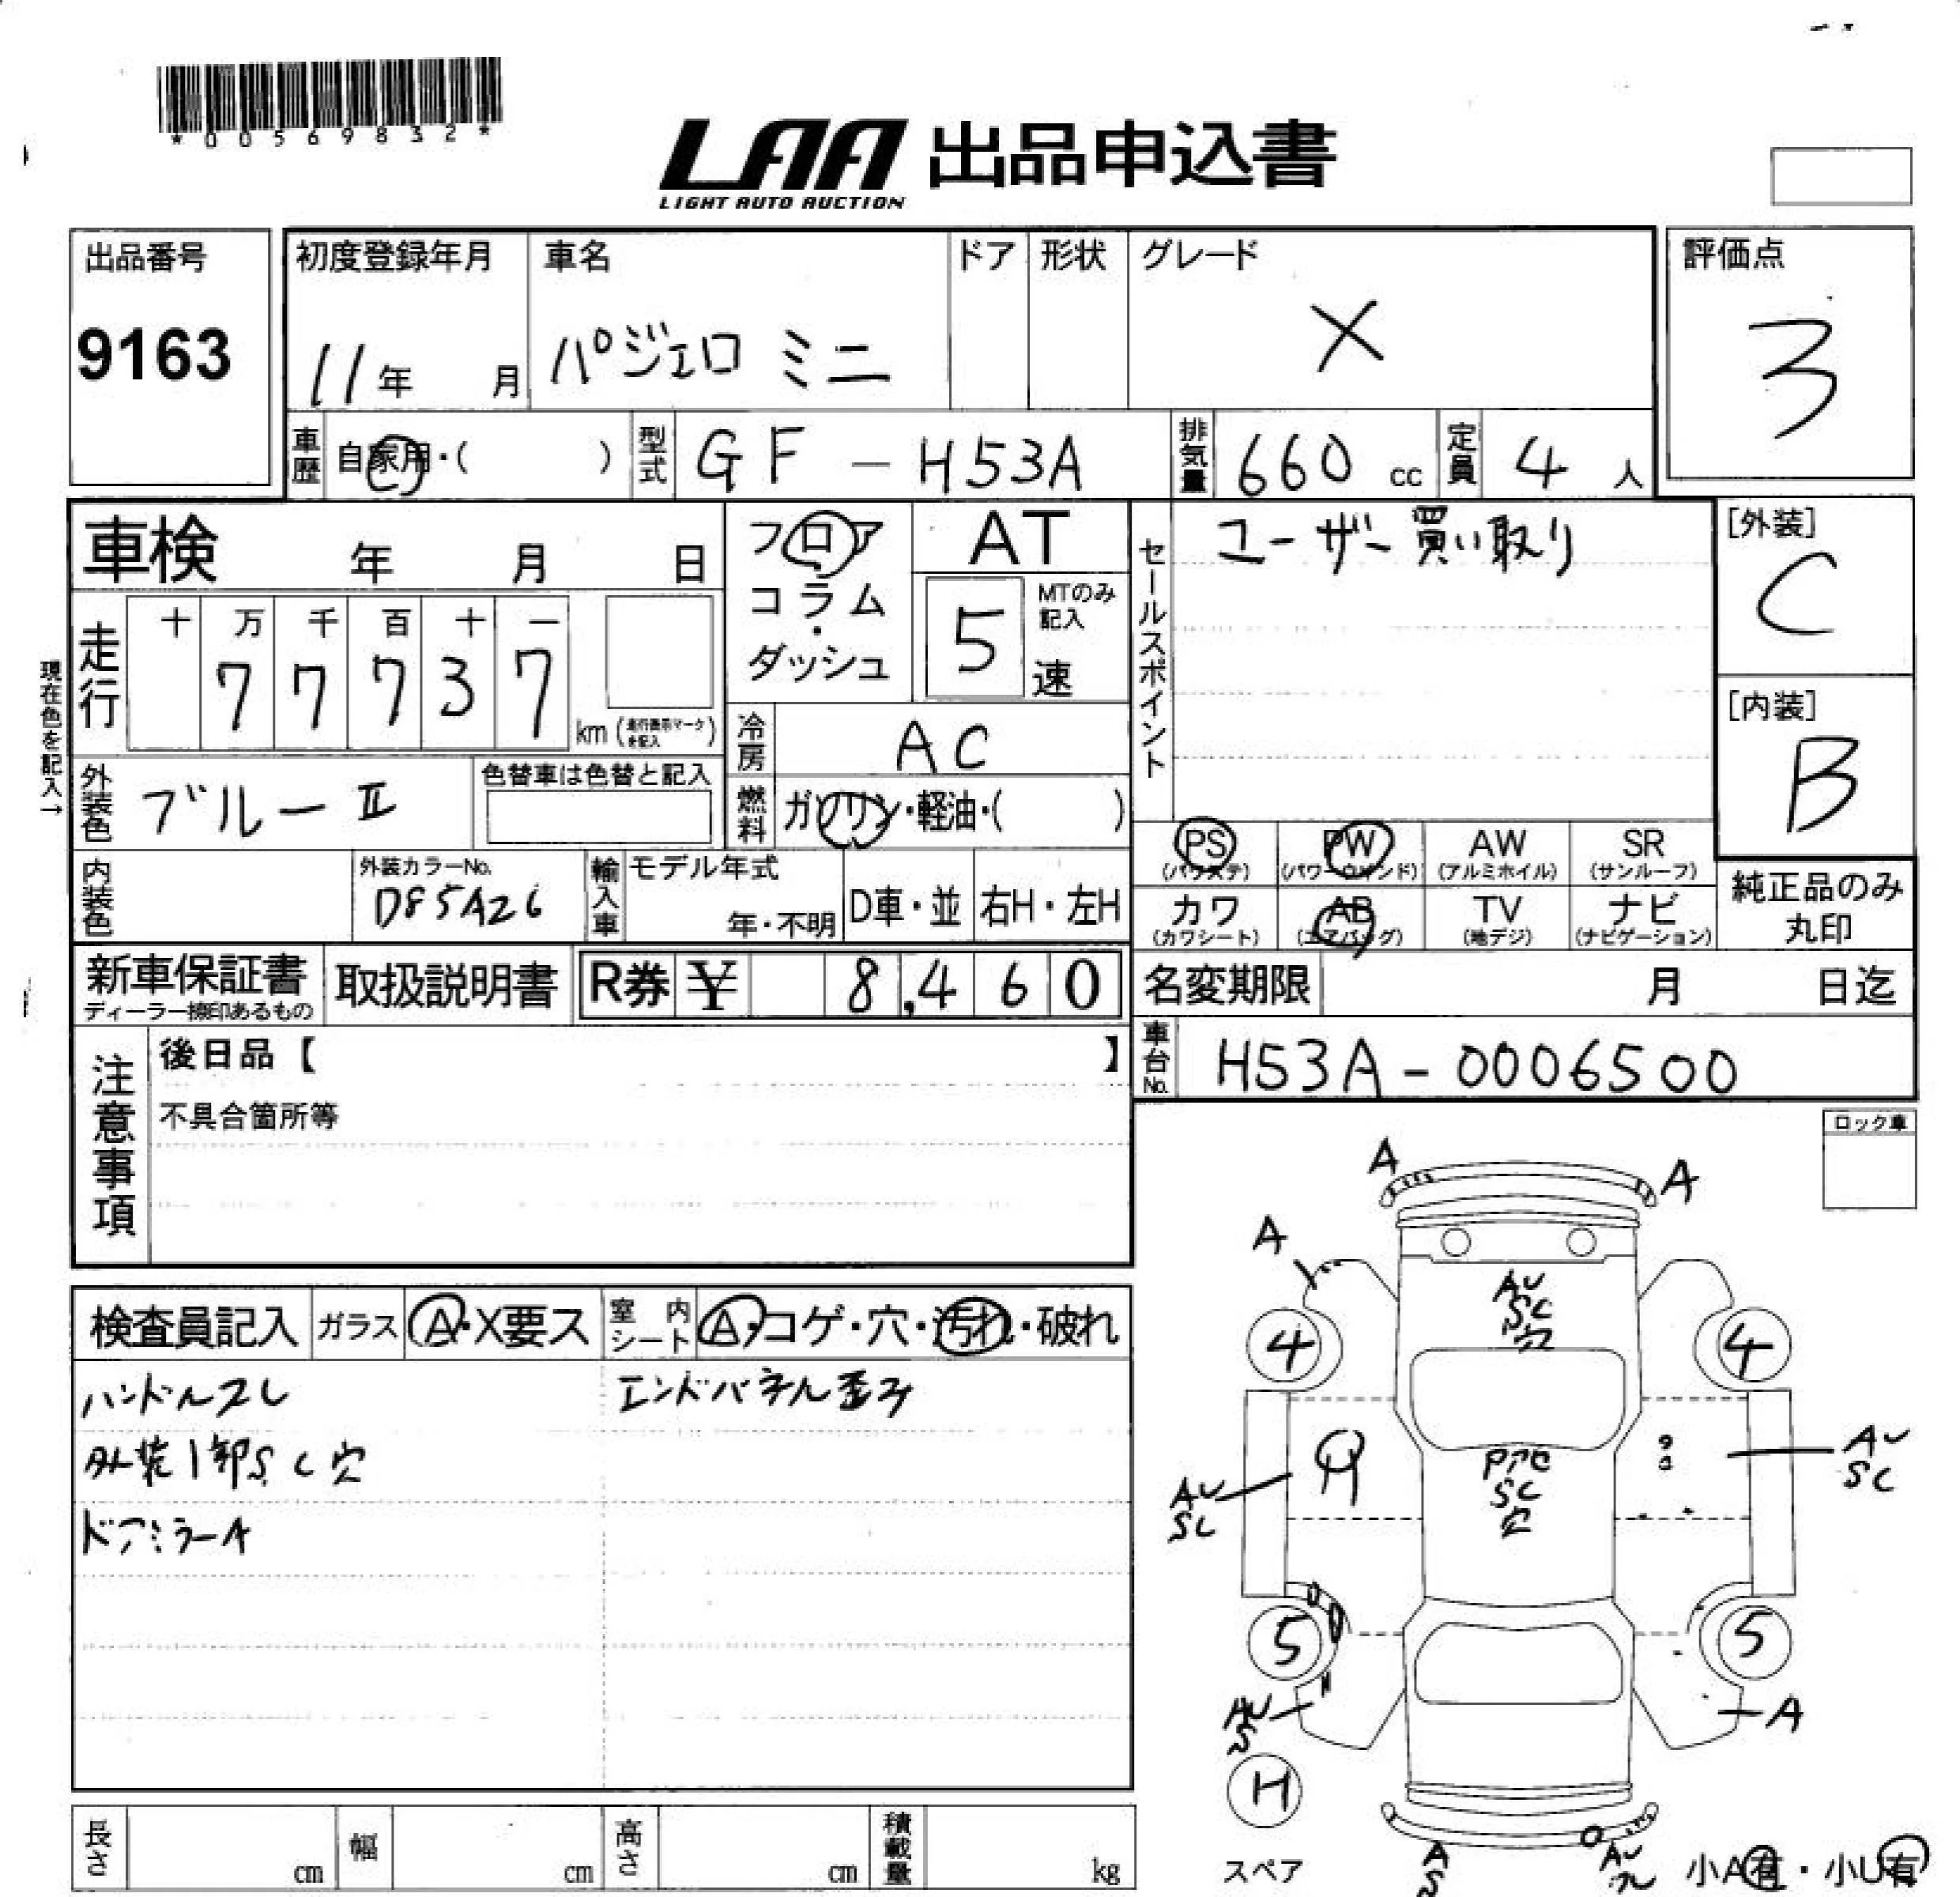 *00569832*
LAA 出品申込書
LIGHT AUTO AUCTION
出品番号
9163
初度登録年月
11年 月
車名
パジェロ ミニ
ドア
形状
グレード
X
評価点
3
車歴
自家用・( )
型式
GF - H53A
排気量
660 cc
定員
4 人
車検 年 月 日
走行
十 万 千 百 十 一
7 7 7 3 7
km (走行表示マークを記入)
現在色を記入→
フロア・コラム・ダッシュ
AT
5 速
MTのみ記入
冷房
AC
燃料
ガソリン・軽油・( )
セールスポイント
ユーザー買い取り
[外装]
C
[内装]
B
外装色
ブルーⅡ
色替車は色替と記入
内装色
外装カラーNo.
D85A26
輸入車
モデル年式
年・不明
D車・並
右H・左H
PS
(パワステ)
PW
(パワーウインド)
AW
(アルミホイル)
SR
(サンルーフ)
カワ
(カワシート)
AB
(エアバッグ)
TV
(地デジ)
ナビ
(ナビゲーション)
純正品のみ
丸印
新車保証書
ディーラー捺印あるもの
取扱説明書
R券 ¥ 8,460
名変期限 月 日迄
車台No.
H53A-0006500
注意事項
後日品【 】
不具合箇所等
ロック車
検査員記入
ガラス
A・X要ス
室内シート
A・コゲ・穴・汚れ・破れ
ハンドルスレ
エンドパネル歪み
外装1部SC穴
ドアミラーA
A
A
A
AU
SC
穴
4
4
AU
SC
AU
SC
SC
穴
5
5
AU
S
A
H
スペア
A
S
AU
小A有・小U有
長さ cm
幅 cm
高さ cm
積載量 kg